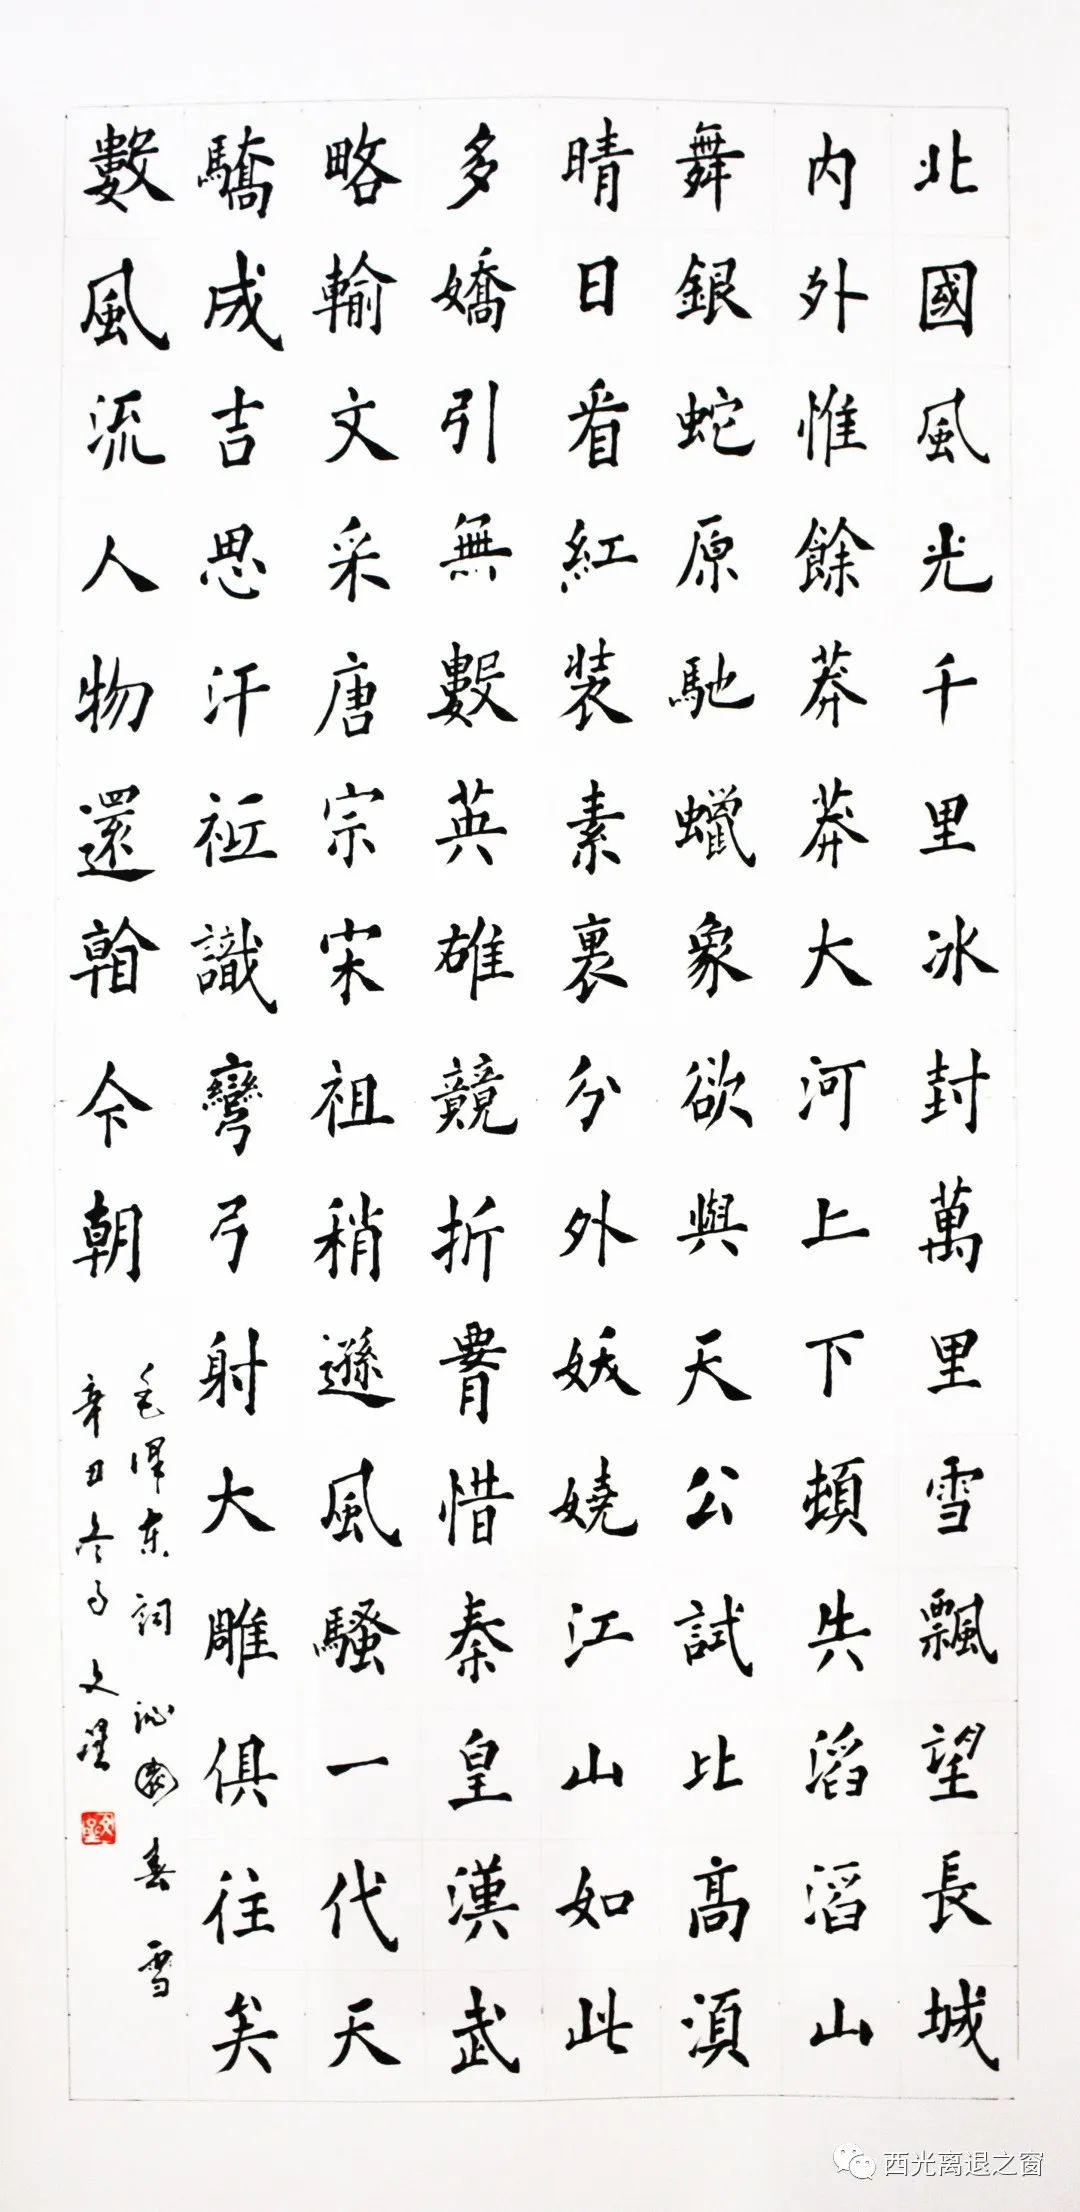 北國風光千里冰封萬里雪飄望長城
内外惟餘莽莽大河上下頓失滔滔山
舞銀蛇原馳蠟象欲與天公試比高須
晴日看紅装素裹分外妖嬈江山如此
多嬌引無數英雄競折腰惜秦皇漢武
略輸文采唐宗宋祖稍遜風騷一代天
驕成吉思汗祗識彎弓射大雕俱往矣
數風流人物還看今朝
毛澤東詞 沁園春 雪
辛丑冬 文
西光离退之窗